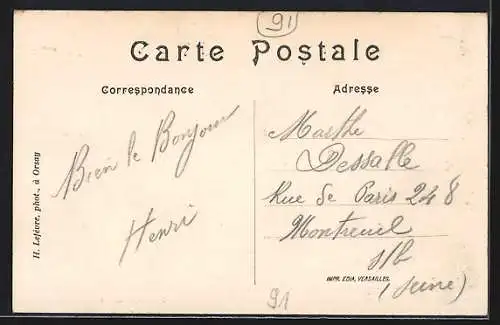 91
Carte Postale
Correspondance
Adresse
H. Lefèvre, phot., à Orsay
Bien le Bonjour
Henri
Marthe
Dessalle
Rue De Paris 248
Montreuil
s/b
(Seine)
IMPR. EDIA, VERSAILLES.
91